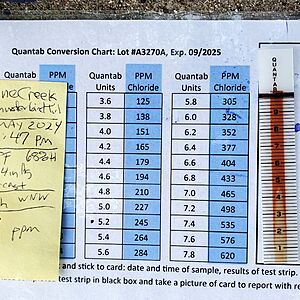 Quantab Conversion Chart: Lot #A3270A, Exp. 09/2025
Quantab PPM Quantab PPM Quantab PPM
Units Chloride Units Chloride
3.6 125 5.8 305
3.8 138 6.0 328
4.0 151 6.2 352
4.2 165 6.4 377
4.4 179 6.6 404
4.6 194 6.8 433
4.8 210 7.0 465
5.0 227 7.2 498
5.2 245 7.4 535
5.4 264 7.6 576
5.6 284 7.8 620
Creek
MAY 2024
:47 PM
WNW
ppm
QUANTAB
and stick to card: date and time of sample, results of test strip.
test strip in black box and take a picture of card to report with